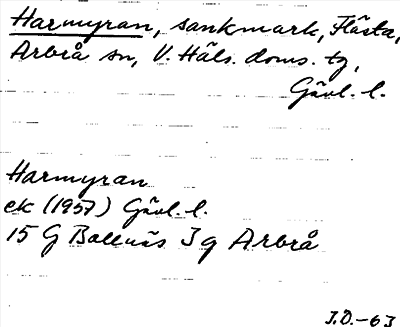 Harmyran, sankmark, Flästa,
Arbrå sn, V. Häls. doms. tg,
Gävl. l.
Harmyran
ek (1957) Gävl. l.
15 G Bollnäs 3 g Arbrå
J.O.-63